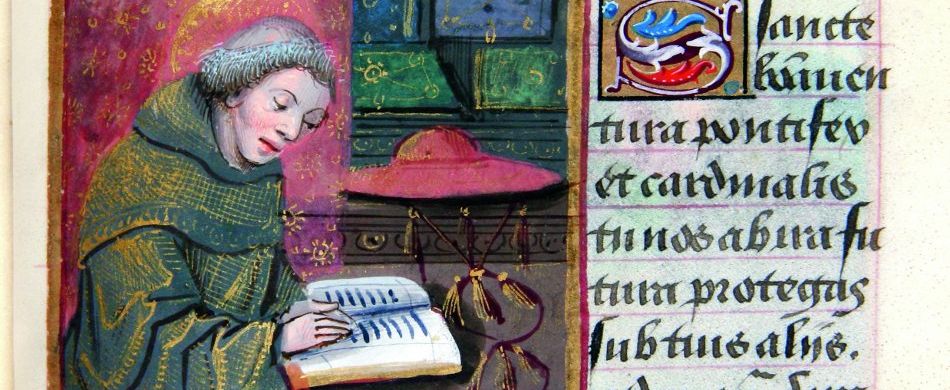 Sancte
bōauen
tura pontifex
et cardinalis
tu nos ab ira fu
tura protegas
sub tuis alijs.